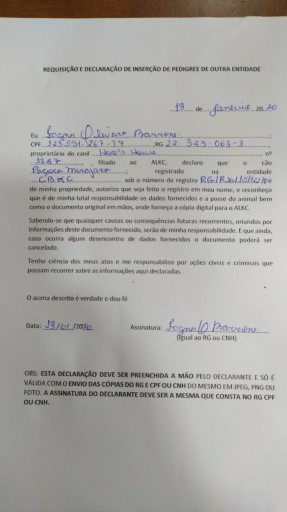 REQUISIÇÃO E DECLARAÇÃO DE INSERÇÃO DE PEDIGREE DE OUTRA ENTIDADE
13 de Janeiro 20 20
Eu Oliveira Barrone
CPF RG 22 329 063-3
proprietário do canil House nº
1387, filiado ao ALKC, declaro que o cão
registrado na entidade
CBKC sob o número de registro
de minha propriedade, autorizo que seja feito o registro em meu nome, e reconheço
que é de minha total responsabilidade os dados fornecidos e a posse do animal bem
como o documento original em mãos, onde forneço a cópia digital para o ALKC.
Sabendo-se que quaisquer causas ou consequências futuras recorrentes, oriundos por
informações deste documento fornecido, serão de minha responsabilidade. E que ainda,
caso ocorra algum desencontro de dados fornecidos o documento poderá ser
cancelado.
Tenho ciência dos meus atos e me responsabilizo por ações cíveis e criminais que
possam recorrer sobre as informações aqui declaradas.
O acima descrito é verdade e dou fé
Data: 13/01/2020 Assinatura: O Barrone
(Igual ao RG ou CNH)
OBS: ESTA DECLARAÇÃO DEVE SER PREENCHIDA A MÃO PELO DECLARANTE E SÓ É
VÁLIDA COM O ENVIO DAS CÓPIAS DO RG E CPF OU CNH DO MESMO EM JPEG, PNG OU
FOTO. A ASSINATURA DO DECLARANTE DEVE SER A MESMA QUE CONSTA NO RG CPF
OU CNH.